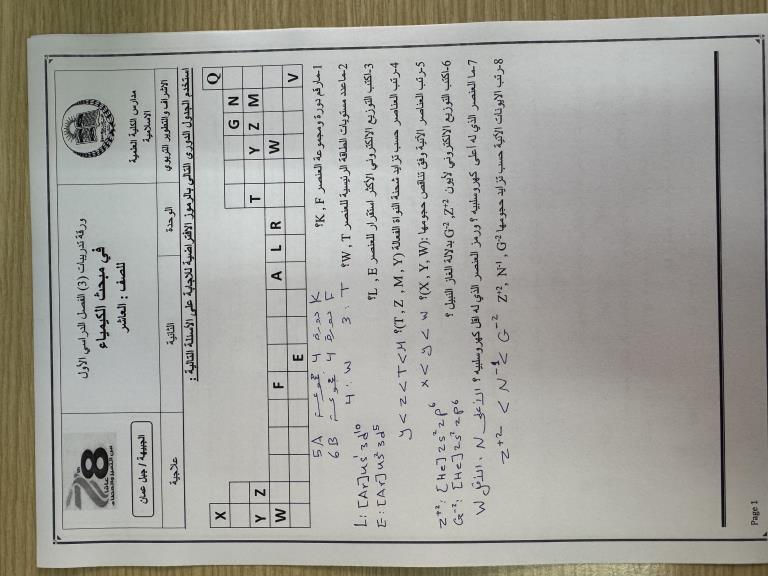 مدارس الكلية العلمية
الاسلامية
ورقة تدريبات (3) الفصل الدراسي الأول
في مبحث الكيمياء
للصف : العاشر
الجبيهة / جبل عمان
الاشراف والتطوير التربوي
الوحدة
الثانية
علاجية
استخدم الجدول الدوري التالي بالرموز الافتراضية للاجابة على الأسئلة التالية :
X Q
G N
Y Z T Y Z M
W F A L R W
E V
1-ما رقم دورة ومجموعة العنصر K , F ؟
K دورة 4 مجموعة 5A
F دورة 4 مجموعة 6B
2-ما عدد مستويات الطاقة الرئيسية للعنصر W , T ؟
4 : W 3 : T
3-اكتب التوزيع الالكتروني الأكثر استقرار للعنصر L , E ؟
L : [Ar] 4s¹ 3d¹⁰
E : [Ar] 4s¹ 3d⁵
4-رتب العناصر حسب تزايد شحنة النواة الفعالة (T, Z , M, Y) ؟
Y < Z < T < M
5-رتب العناصر الآتية وفق تناقص حجومها :(X, Y, W) ؟
X < Y < W
6-اكتب التوزيع الالكتروني لأيون G⁻² ,Z⁺² بدلالة الغاز النبيل ؟
Z⁺² : [He] 2s² 2p⁶
G⁻² : [He] 2s² 2p⁶
7-ما العنصر الذي له أعلى كهروسلبيه ؟ ورمز العنصر الذي له اقل كهروسلبيه ؟
الأعلى N . الأقل W
8-رتب الايونات الآتية حسب تزايد حجومها Z⁺², N⁻¹ , G⁻²
Z⁺² < N⁻¹ < G⁻²
Page 1